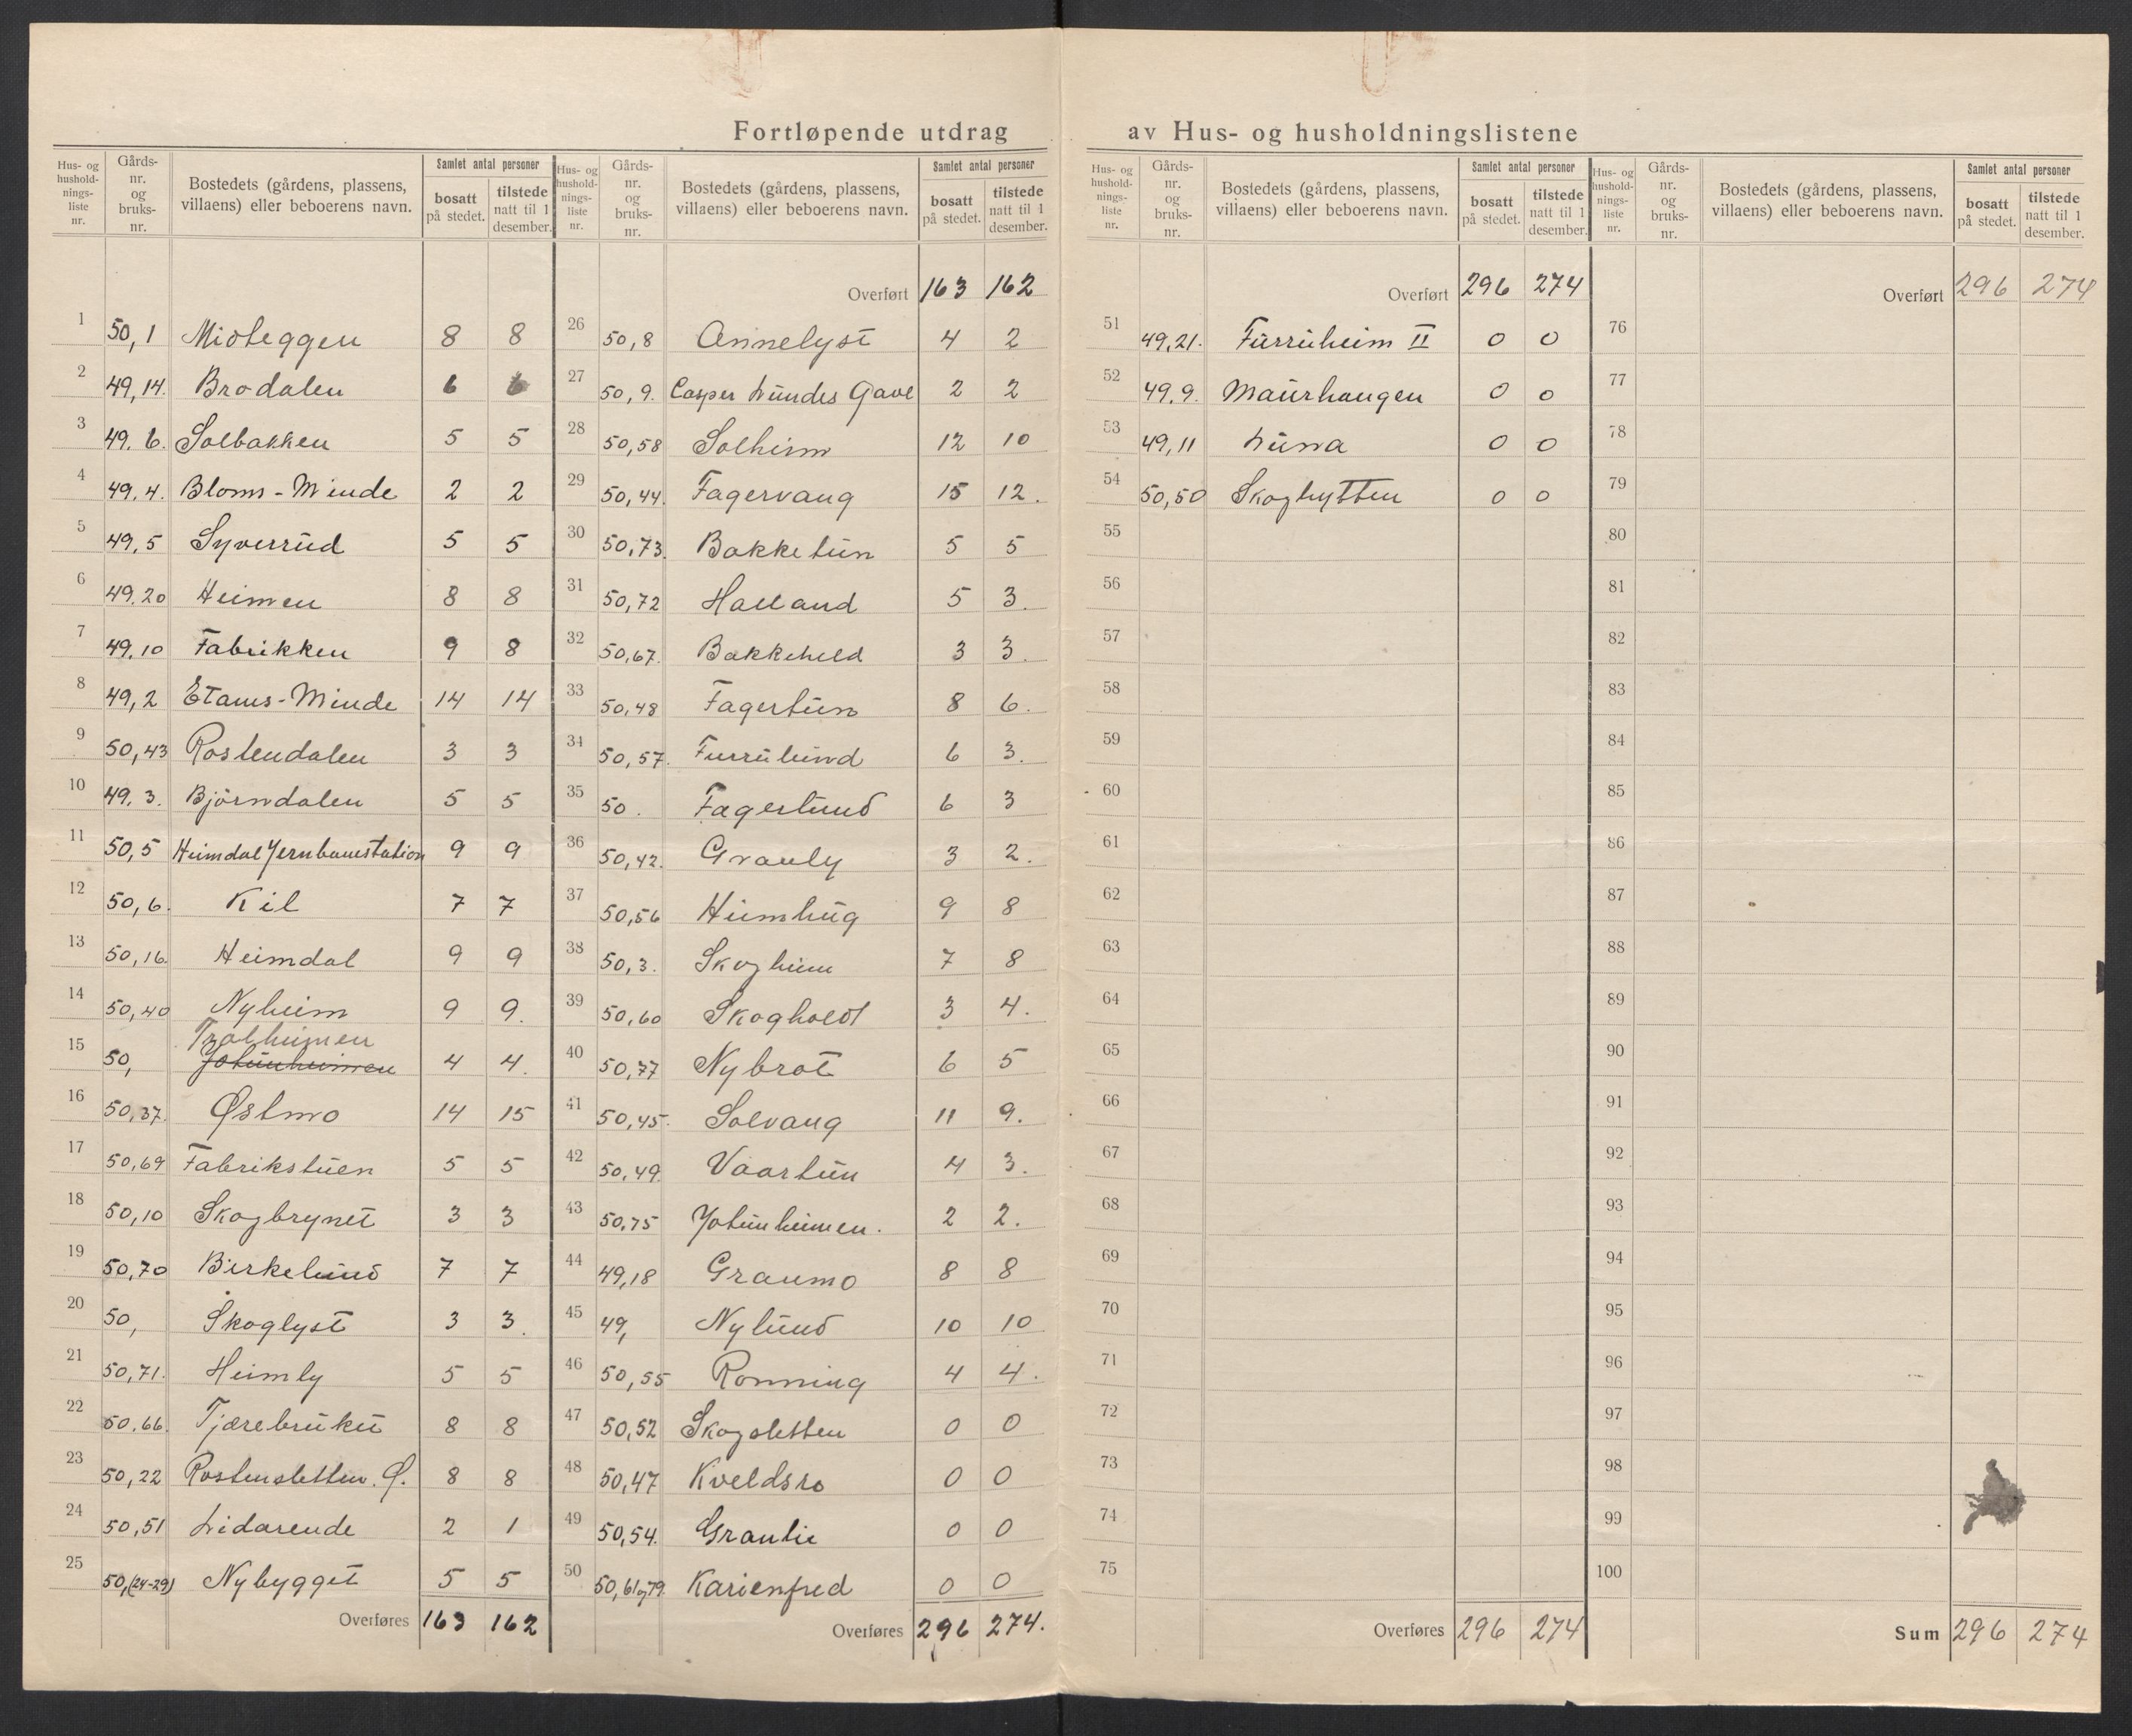 Fortløpende utdrag av Hus- og husholdningslistene
Hus- og hushold-nings-liste nr. Gårds-nr. og bruks-nr. Bostedets (gårdens, plassens, villaens) eller beboerens navn. Samlet antal personer bosatt på stedet. tilstede natt til 1 desember.
1 50,1 Midteggen 8 8
2 49,14. Brodalen 6 6
3 49,6. Solbakken 5 5
4 49,4. Bloms-Minde 2 2
5 49,5 Syverrud 5 5
6 49,20 Heimen 8 8
7 49,10 Fabrikken 9 8
8 49,2 Etams-Minde 14 14
9 50,43 Rostendalen 3 3
10 49,3. Björndalen 5 5
11 50,5 Heimdal Jernbanestation 9 9
12 50,6. Kil 7 7
13 50,16. Heimdal 9 9
14 50,40 Nyheim 9 9.
Trolheimen
15 50, Jotunheimen 4 4.
16 50,37. Østmo 14 15
17 50,69 Fabrikstuen 5 5
18 50,10 Skogbrynet 3 3
19 50,70 Birkelund 7 7
20 50, Skoglyst 3 3.
21 50,71. Heimly 5 5
22 50,66. Tjærebruket 8 8
23 50,22 Rostensletten. Ø. 8 8
24 50,51 Lidarende 2 1
25 50,(24-29) Nybygget 5 5
Overføres 163 162
Hus- og hushold-nings-liste nr. Gårds-nr. og bruks-nr. Bostedets (gårdens, plassens, villaens) eller beboerens navn. Samlet antal personer bosatt på stedet. tilstede natt til 1 desember.
Overført 163 162
26 50,8 Annelyst 4 2
27 50,9. Casper Lundes Gave 2 2
28 50,58 Solheim 12 10
29 50,44. Fagervang 15 12.
30 50,73. Bakketun 5 5
31 50,72 Haaland 5 3.
32 50,67. Bakkeheld 3 3.
33 50,48 Fagertun 8 6.
34 50,57. Furrulund 6 3.
35 50. Fagerlund 6 3
36 50,42. Granly 3 2.
37 50,56 Heimhug 9 8
38 50,3. Skogheim 7 8
39 50,60 Skogholdt 3 4.
40 50,77 Nybrot 6 5
41 50,45. Solvang 11 9.
42 50,49. Vaartun 4 3.
43 50,75 Jotunheimen. 2 2.
44 49,18 Granmo 8 8
45 49, Nylund 10 10
46 50,55 Ronning 4 4.
47 50,52 Skogsletten 0 0
48 50,47 Kveldsro 0 0
49 50,54. Granlie 0 0
50 50,61og79. Karienfred 0 0
Overføres 296 274.
Hus- og hushold-nings-liste nr. Gårds-nr. og bruks-nr. Bostedets (gårdens, plassens, villaens) eller beboerens navn. Samlet antal personer bosatt på stedet. tilstede natt til 1 desember.
Overført 296 274
51 49,21. Furruheim II 0 0
52 49,9. Maurhaugen 0 0
53 49,11 Luna 0 0
54 50,50 Skoghytten 0 0
55
56
57
58
59
60
61
62
63
64
65
66
67
68
69
70
71
72
73
74
75
Overføres 296 274
Hus- og hushold-nings-liste nr. Gårds-nr. og bruks-nr. Bostedets (gårdens, plassens, villaens) eller beboerens navn. Samlet antal personer bosatt på stedet. tilstede natt til 1 desember.
Overført 296 274
76
77
78
79
80
81
82
83
84
85
86
87
88
89
90
91
92
93
94
95
96
97
98
99
100
Sum 296 274